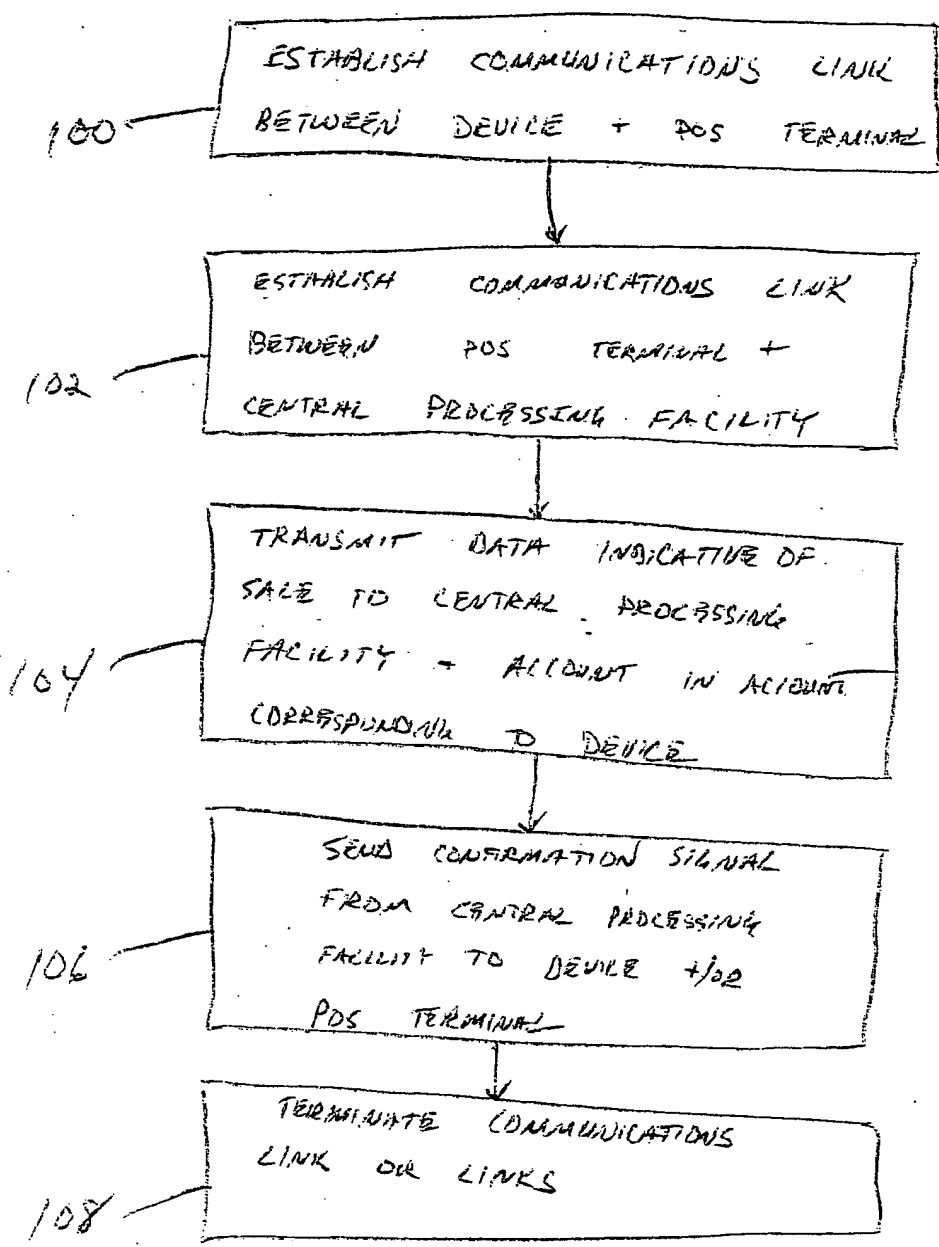 ESTABLISH COMMUNICATIONS LINK
100 BETWEEN DEVICE + POS TERMINAL
ESTABLISH COMMUNICATIONS LINK
BETWEEN POS TERMINAL +
102
CENTRAL PROCESSING FACILITY
TRANSMIT DATA INDICATIVE OF
SALE TO CENTRAL PROCESSING
104 FACILITY + ACCOUNT IN ACCOUNT
CORRESPONDING TO DEVICE
SEND CONFIRMATION SIGNAL
FROM CENTRAL PROCESSING
106 FACILITY TO DEVICE +/OR
POS TERMINAL
TERMINATE COMMUNICATIONS
LINK OR LINKS
108